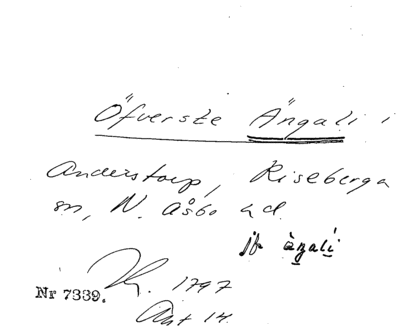 Öfverste Ängali i
Anderstorp, Riseberga
sn, N. Åsbo hd.
jfr ängali
Nr 7339.
1797
Akt 14.